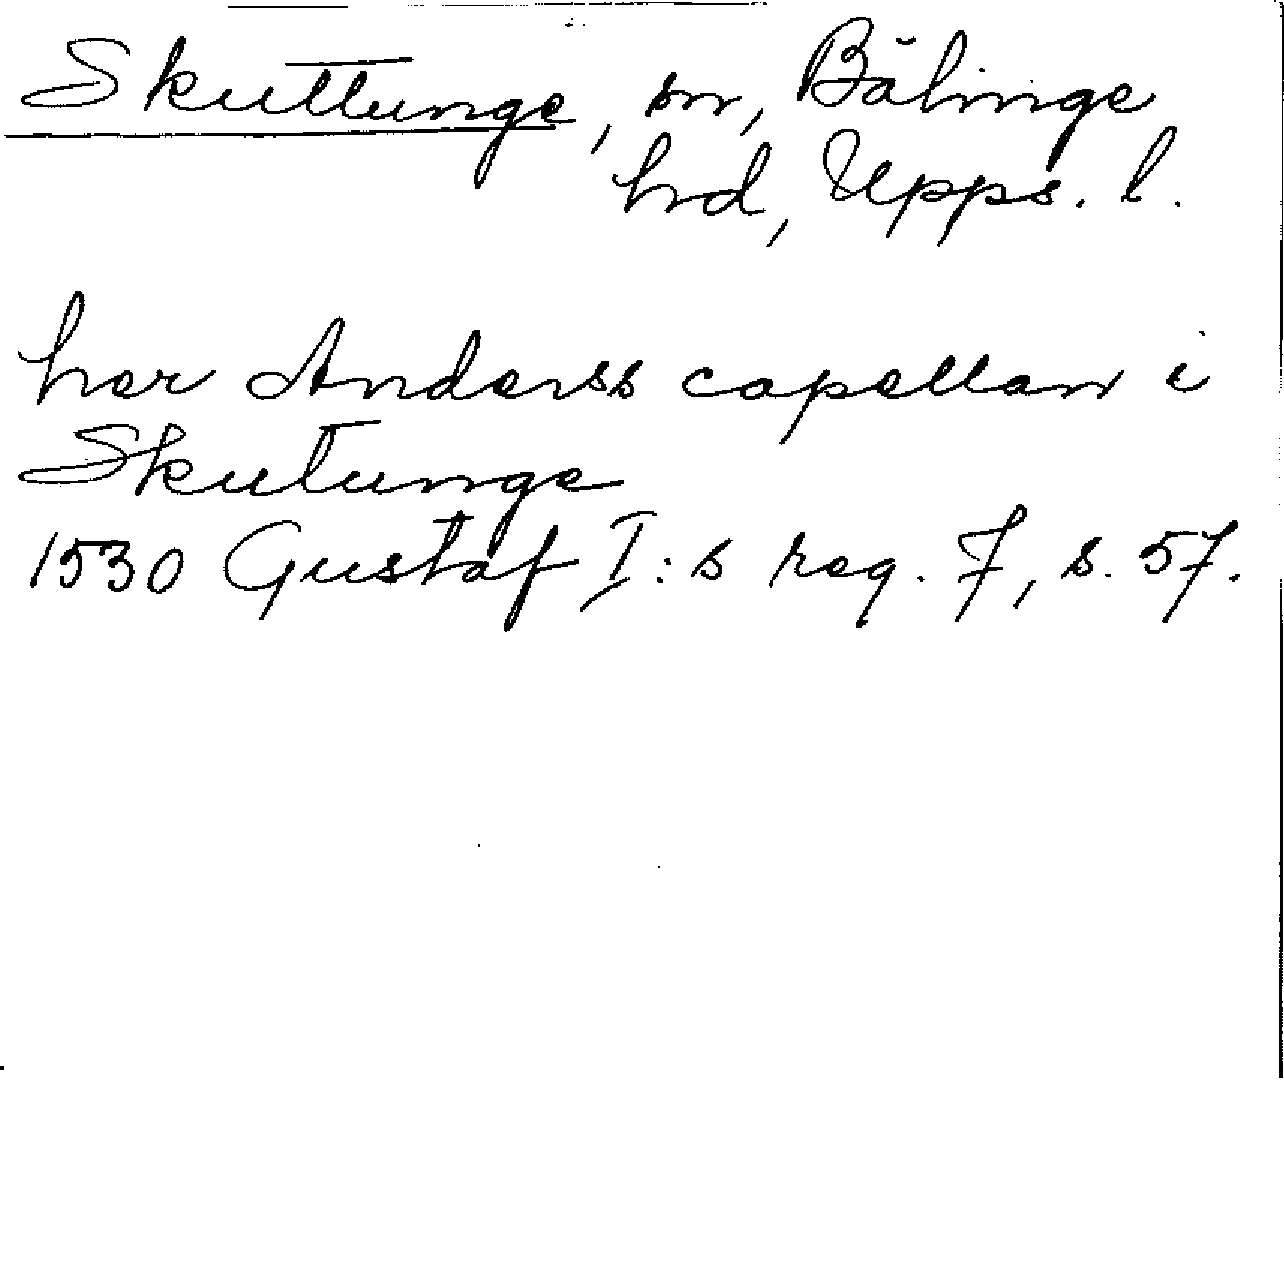 Skuttunge, sn, Bälinge
hd, Upps. l.
her Anderss capellan i
Skutunge
1530 Gustaf I:s reg. 7, s. 57.